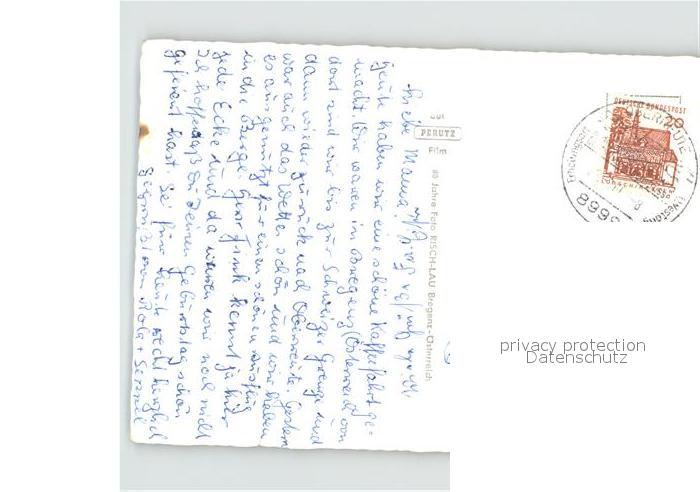 Liebe Mama,
heute haben wir eine schöne Kaffeefahrt ge-
macht. Wir waren in Bregenz (Österreich) von
dort sind wir bis zur Schweizer Grenze und
dann wieder zurück nach Oberreute. Gestern
war auch das Wetter schön und wir haben
es ausgenützt für einen schönen Ausflug
in die Berge. Herr Fink kennt ja hier
jede Ecke und da waren wir noch nicht
Ich hoffe daß Du Deinen Geburtstag schön
gefeiert hast. Sei für heute recht herzlich
gegrüßt von
auf
PERUTZ
Film
80 Jahre Foto RISCH-LAU Bregenz-Österreich
DEUTSCHE BUNDESPOST
20
8999
privacy protection
Datenschutz